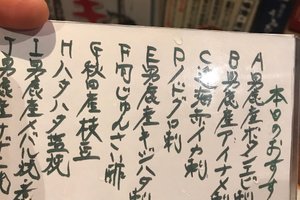 本日のおすす
A 男鹿産ボタンエビ刺
B 男鹿産アイナメ刺
C 近海赤イカ刺
D ノドグロ刺
E 男鹿産キジハタ刺
F 阿じゅんさい酢
G 秋田産枝豆
H ハタハタ塩焼
I 男鹿産
J 男鹿産サザエ